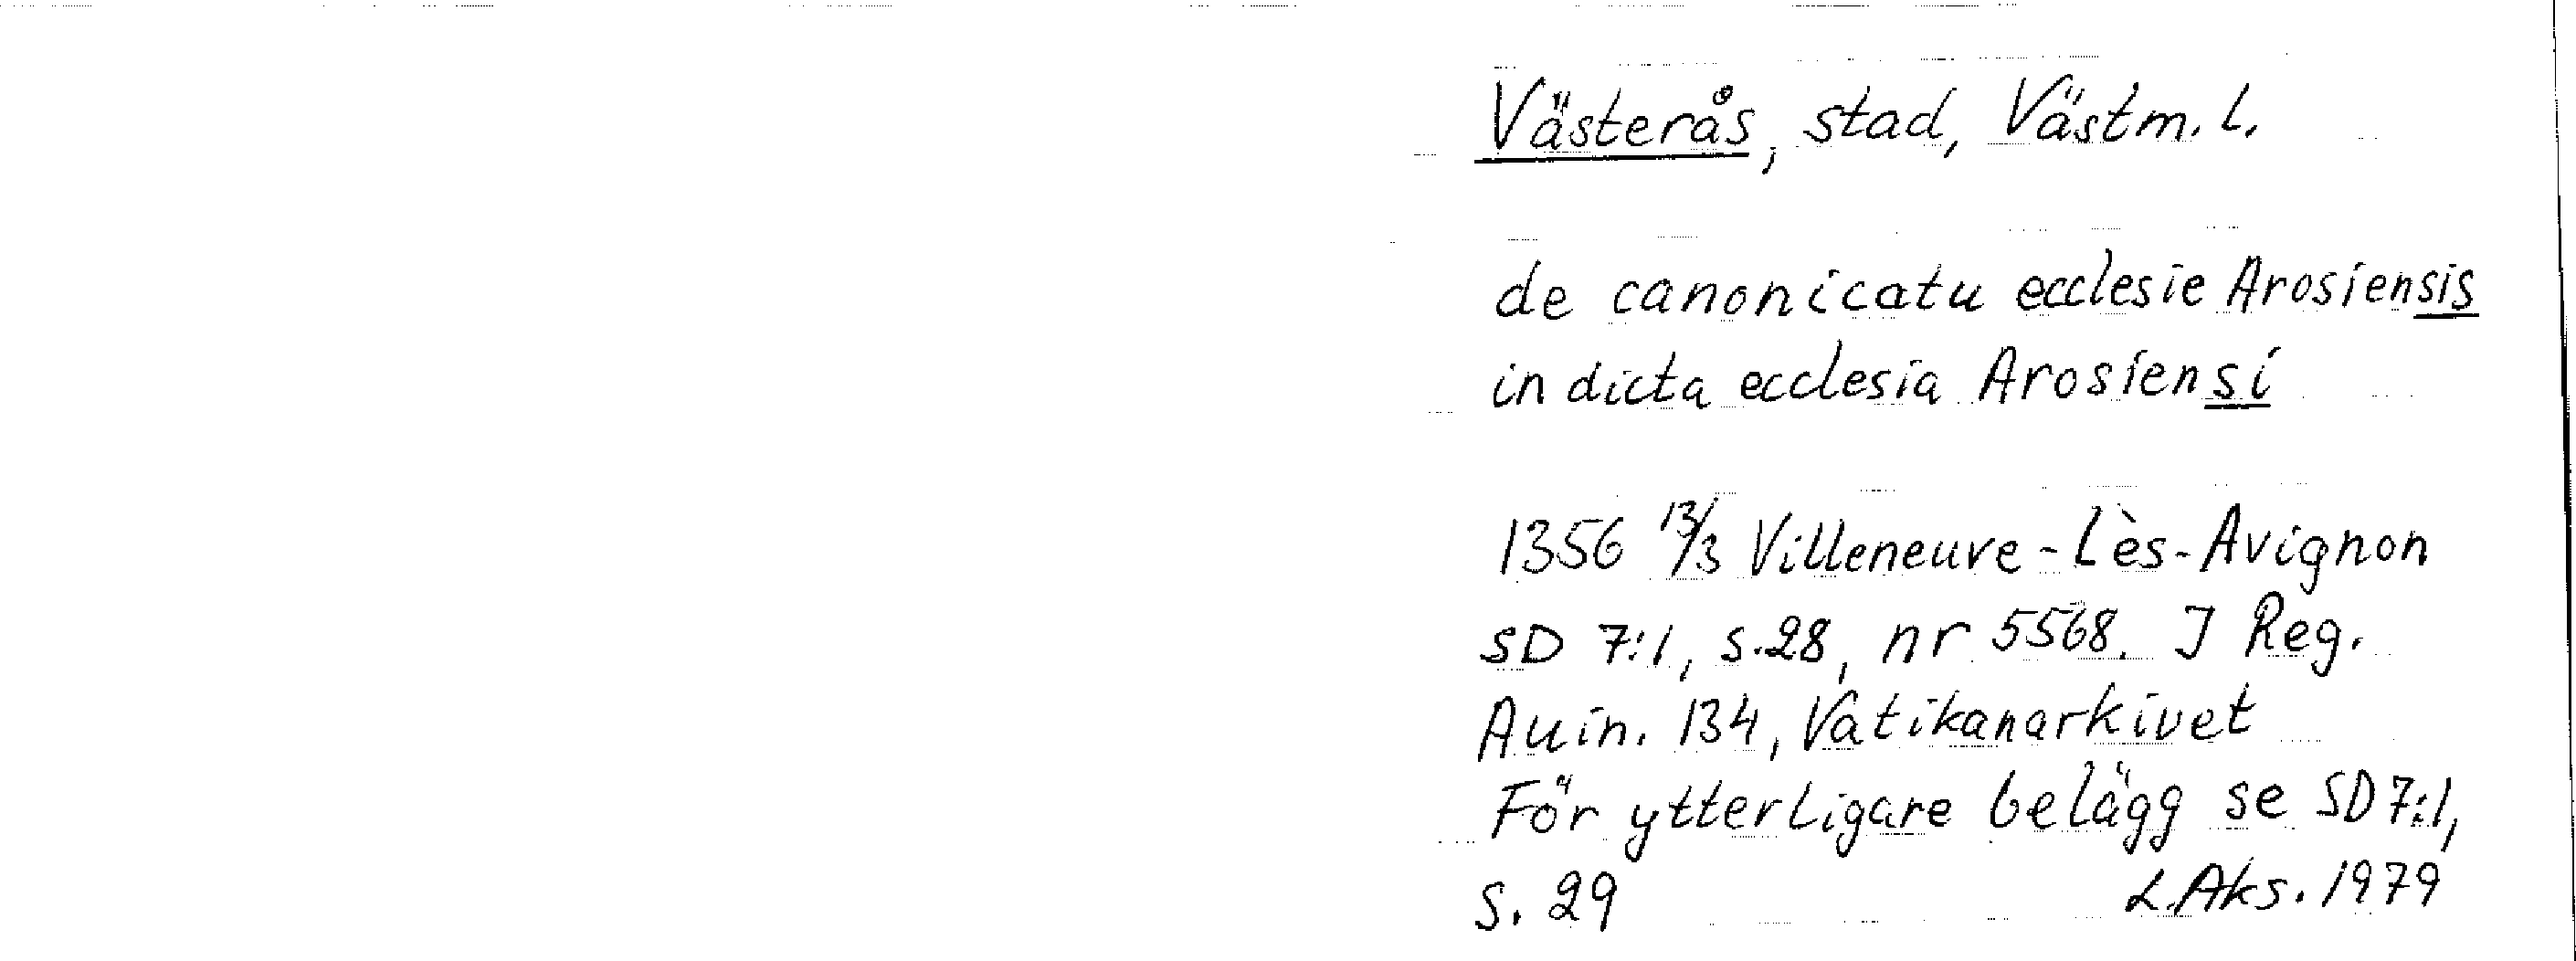 Västerås, stad, Västm. l.
de canonicatu ecclesie Arosiensis
in dicta ecclesia Arosiensi
1356 13/3 Villeneuve-Lès-Avignon
SD 7:1, s.28, nr 5568. I Reg.
Auin. 134, Vatikanarkivet
För ytterligare belägg se SD 7:1,
s. 29 L.Aks. 1979